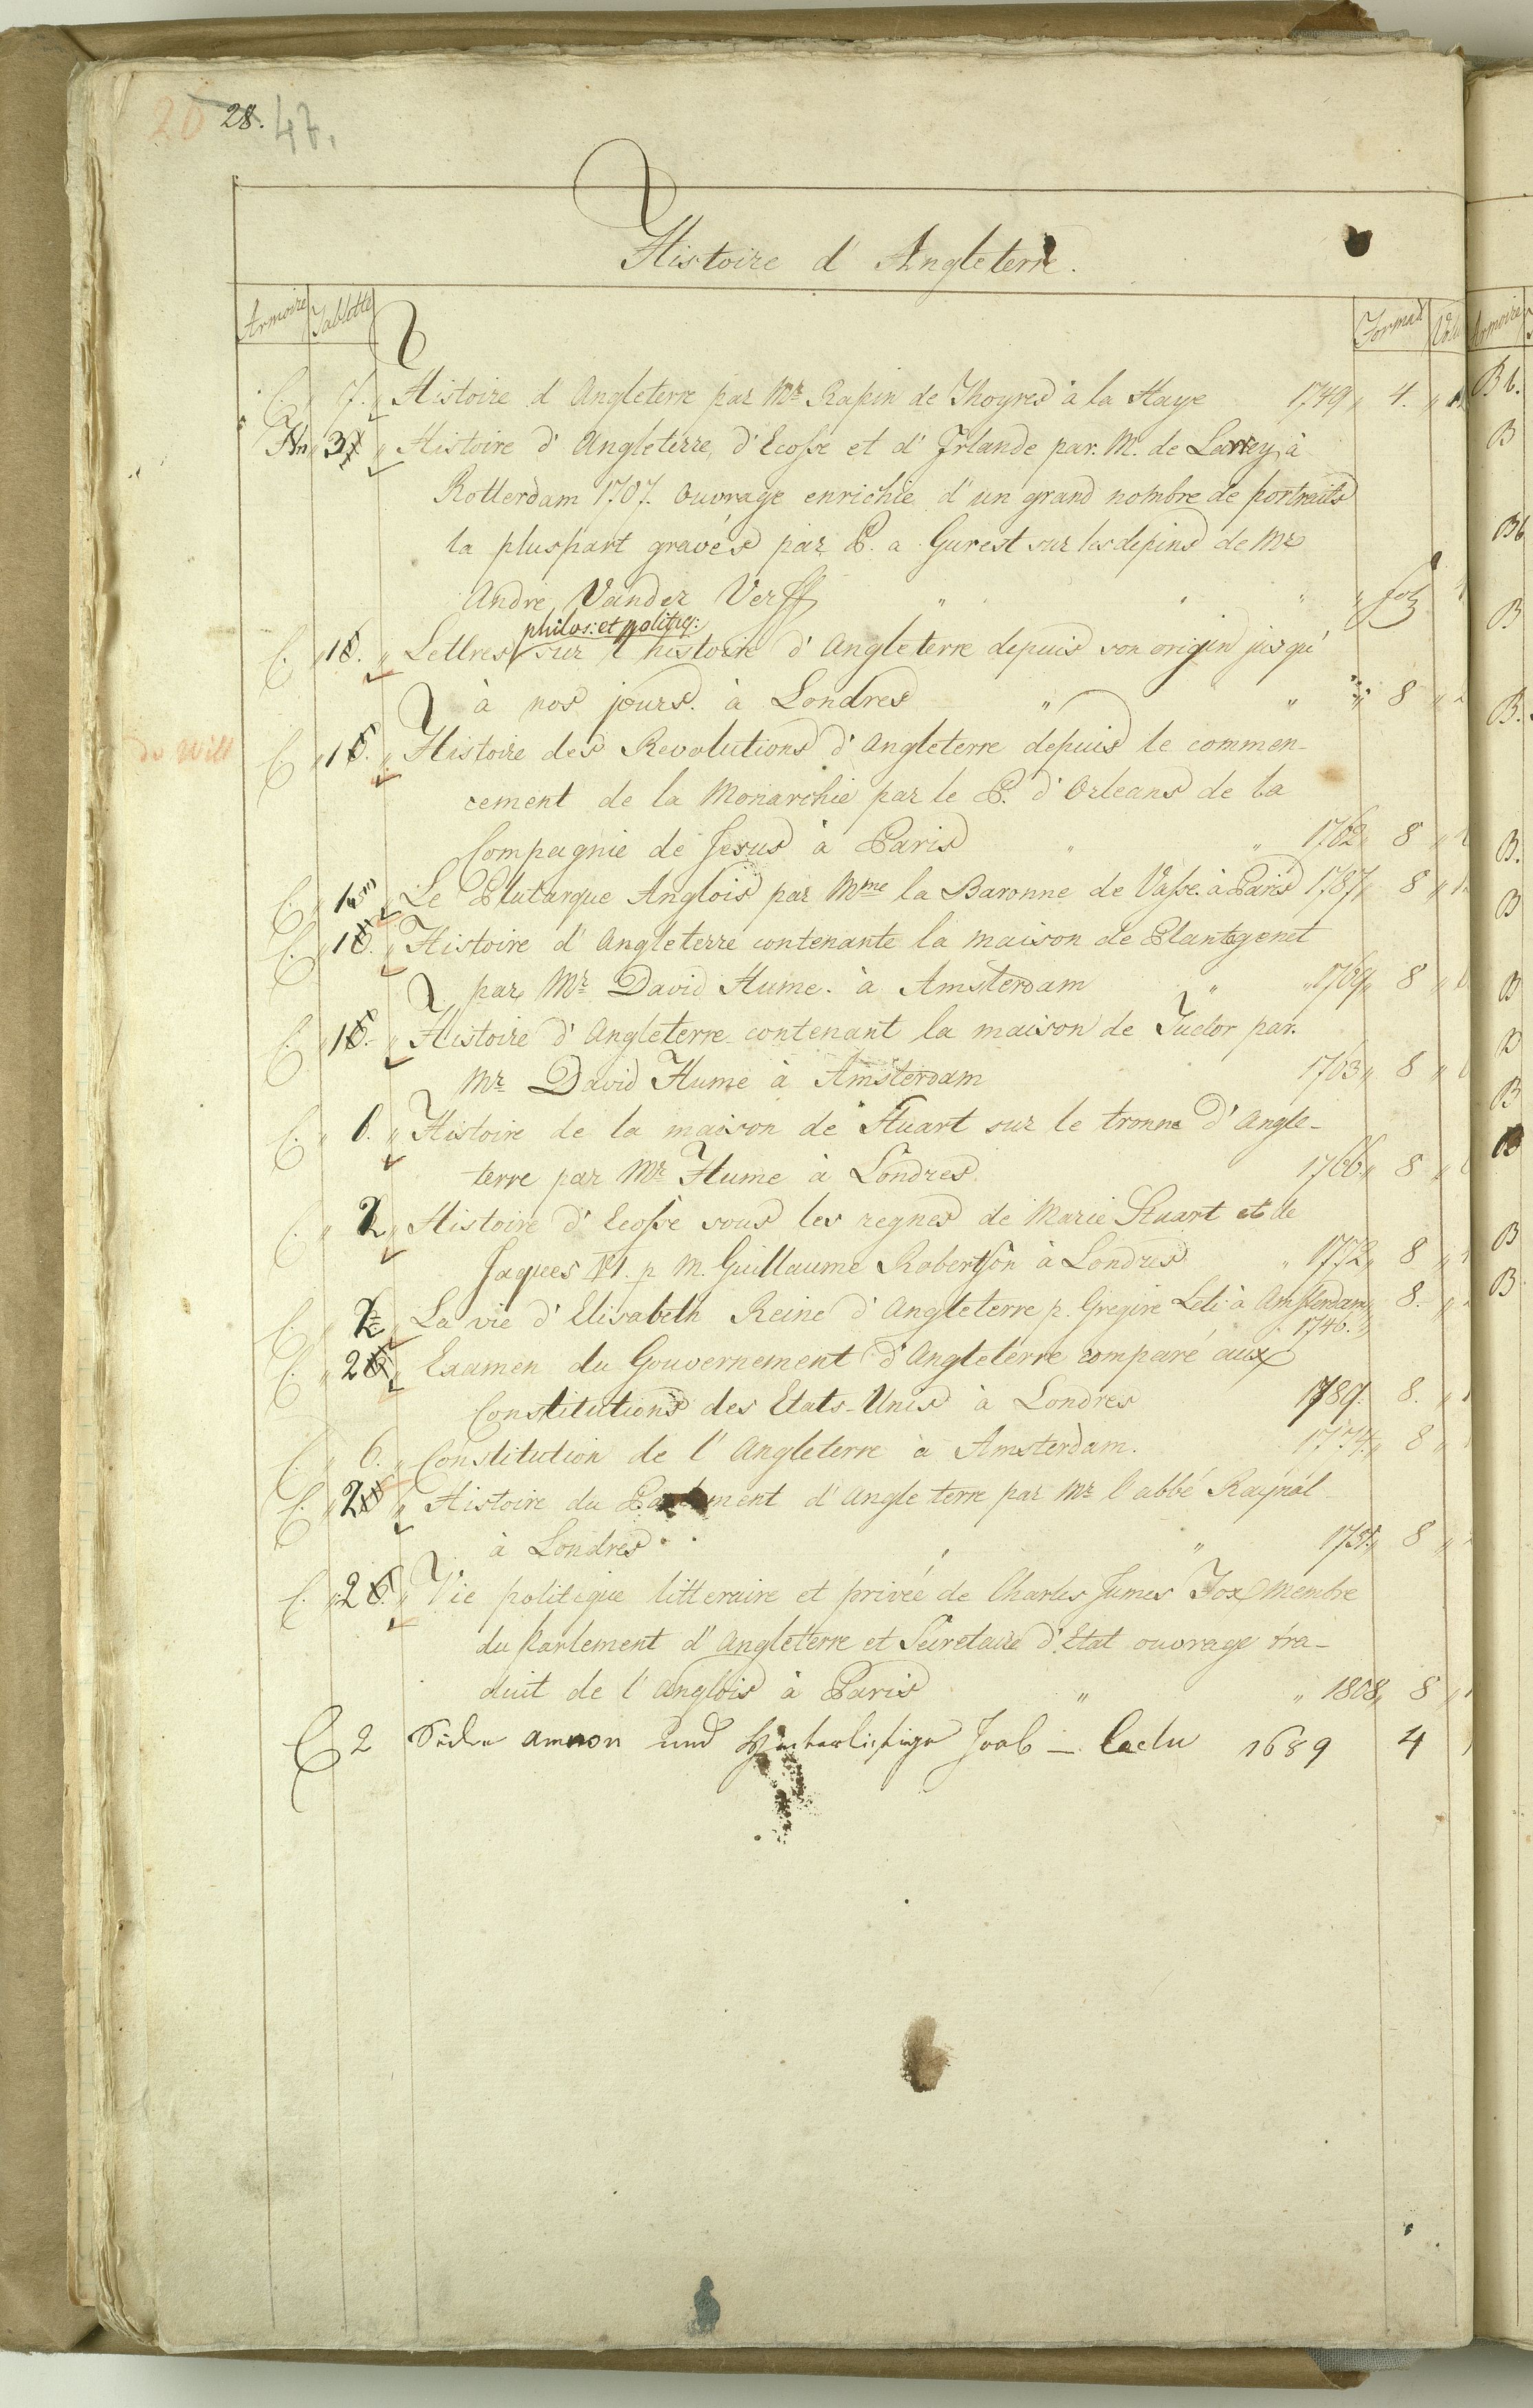 20 28. 47.
Histoire d' Angleterre.
Armoire Tablette Format
C. 7. Histoire d' Angleterre par Mr Rapin de Thoyres à la Haye 1749 4.
Hn 3 Histoire d' Angleterre, d' Ecosse et d' Irlande par. M. de Larrey, à
Rotterdam 1707. Ouvrage enrichie d' un grand nombre de portraits
la pluspart gravés par P. a Gunst sur les desseins de Mr
André Vander Verff " " " fol
philos: et politiq:
C. 1 Lettres sur l' histoire d' Angleterre depuis son origin jusqu'
à nos jours. à Londres " " " 8
do Will C 1 Histoire des Revolutions d' Angleterre depuis le commen-
cement de la Monarchie par le P. d' Orleans de la
Compagnie de Jesus à Paris " " 1762 8
C. 1 Le Plutarque Anglois par Mme la Baronne de Vasse. à Paris 1787 8
C. 1 Histoire d' Angleterre contenante la maison de Plantegenet
par Mr David Hume. à Amsterdam " 1769 8
C. 1 Histoire d' Angleterre contenant la maison de Tudor par.
Mr David Hume à Amsterdam 1763 8
C. 1. Histoire de la maison de Stuart sur le tronne d' Angle-
terre par Mr Hume à Londres 1766 8
C. 2 Histoire d' Ecosse sous les regnes de Marie Stuart et de
Jaques VI. p M. Guillaume Robertson à Londres " 1772 8
C. 2 La vie d' Elisabeth Reine d' Angleterre p Gregire Leti à Amsterdam 8.
1746.
C. 2 Examen du Gouvernement d' Angleterre comparé aux
Constitutions des Etats-Unis à Londres 1789. 8.
C. 6. Constitution de l' Angleterre à Amsterdam. 1774 8
C. 2 Histoire du Parlement d' Angleterre par Mr l' abbé Raynal
à Londres " " 8
C. 2 Vie politique litteraire et privéé de Charles James Fox membre
du Parlement d' Angleterre et Secretaire d' Etat ouvrage tra-
duit de l' Anglois à Paris " " 1808 8
C 2 Amnon und Hinterlistige Joab 1689 4